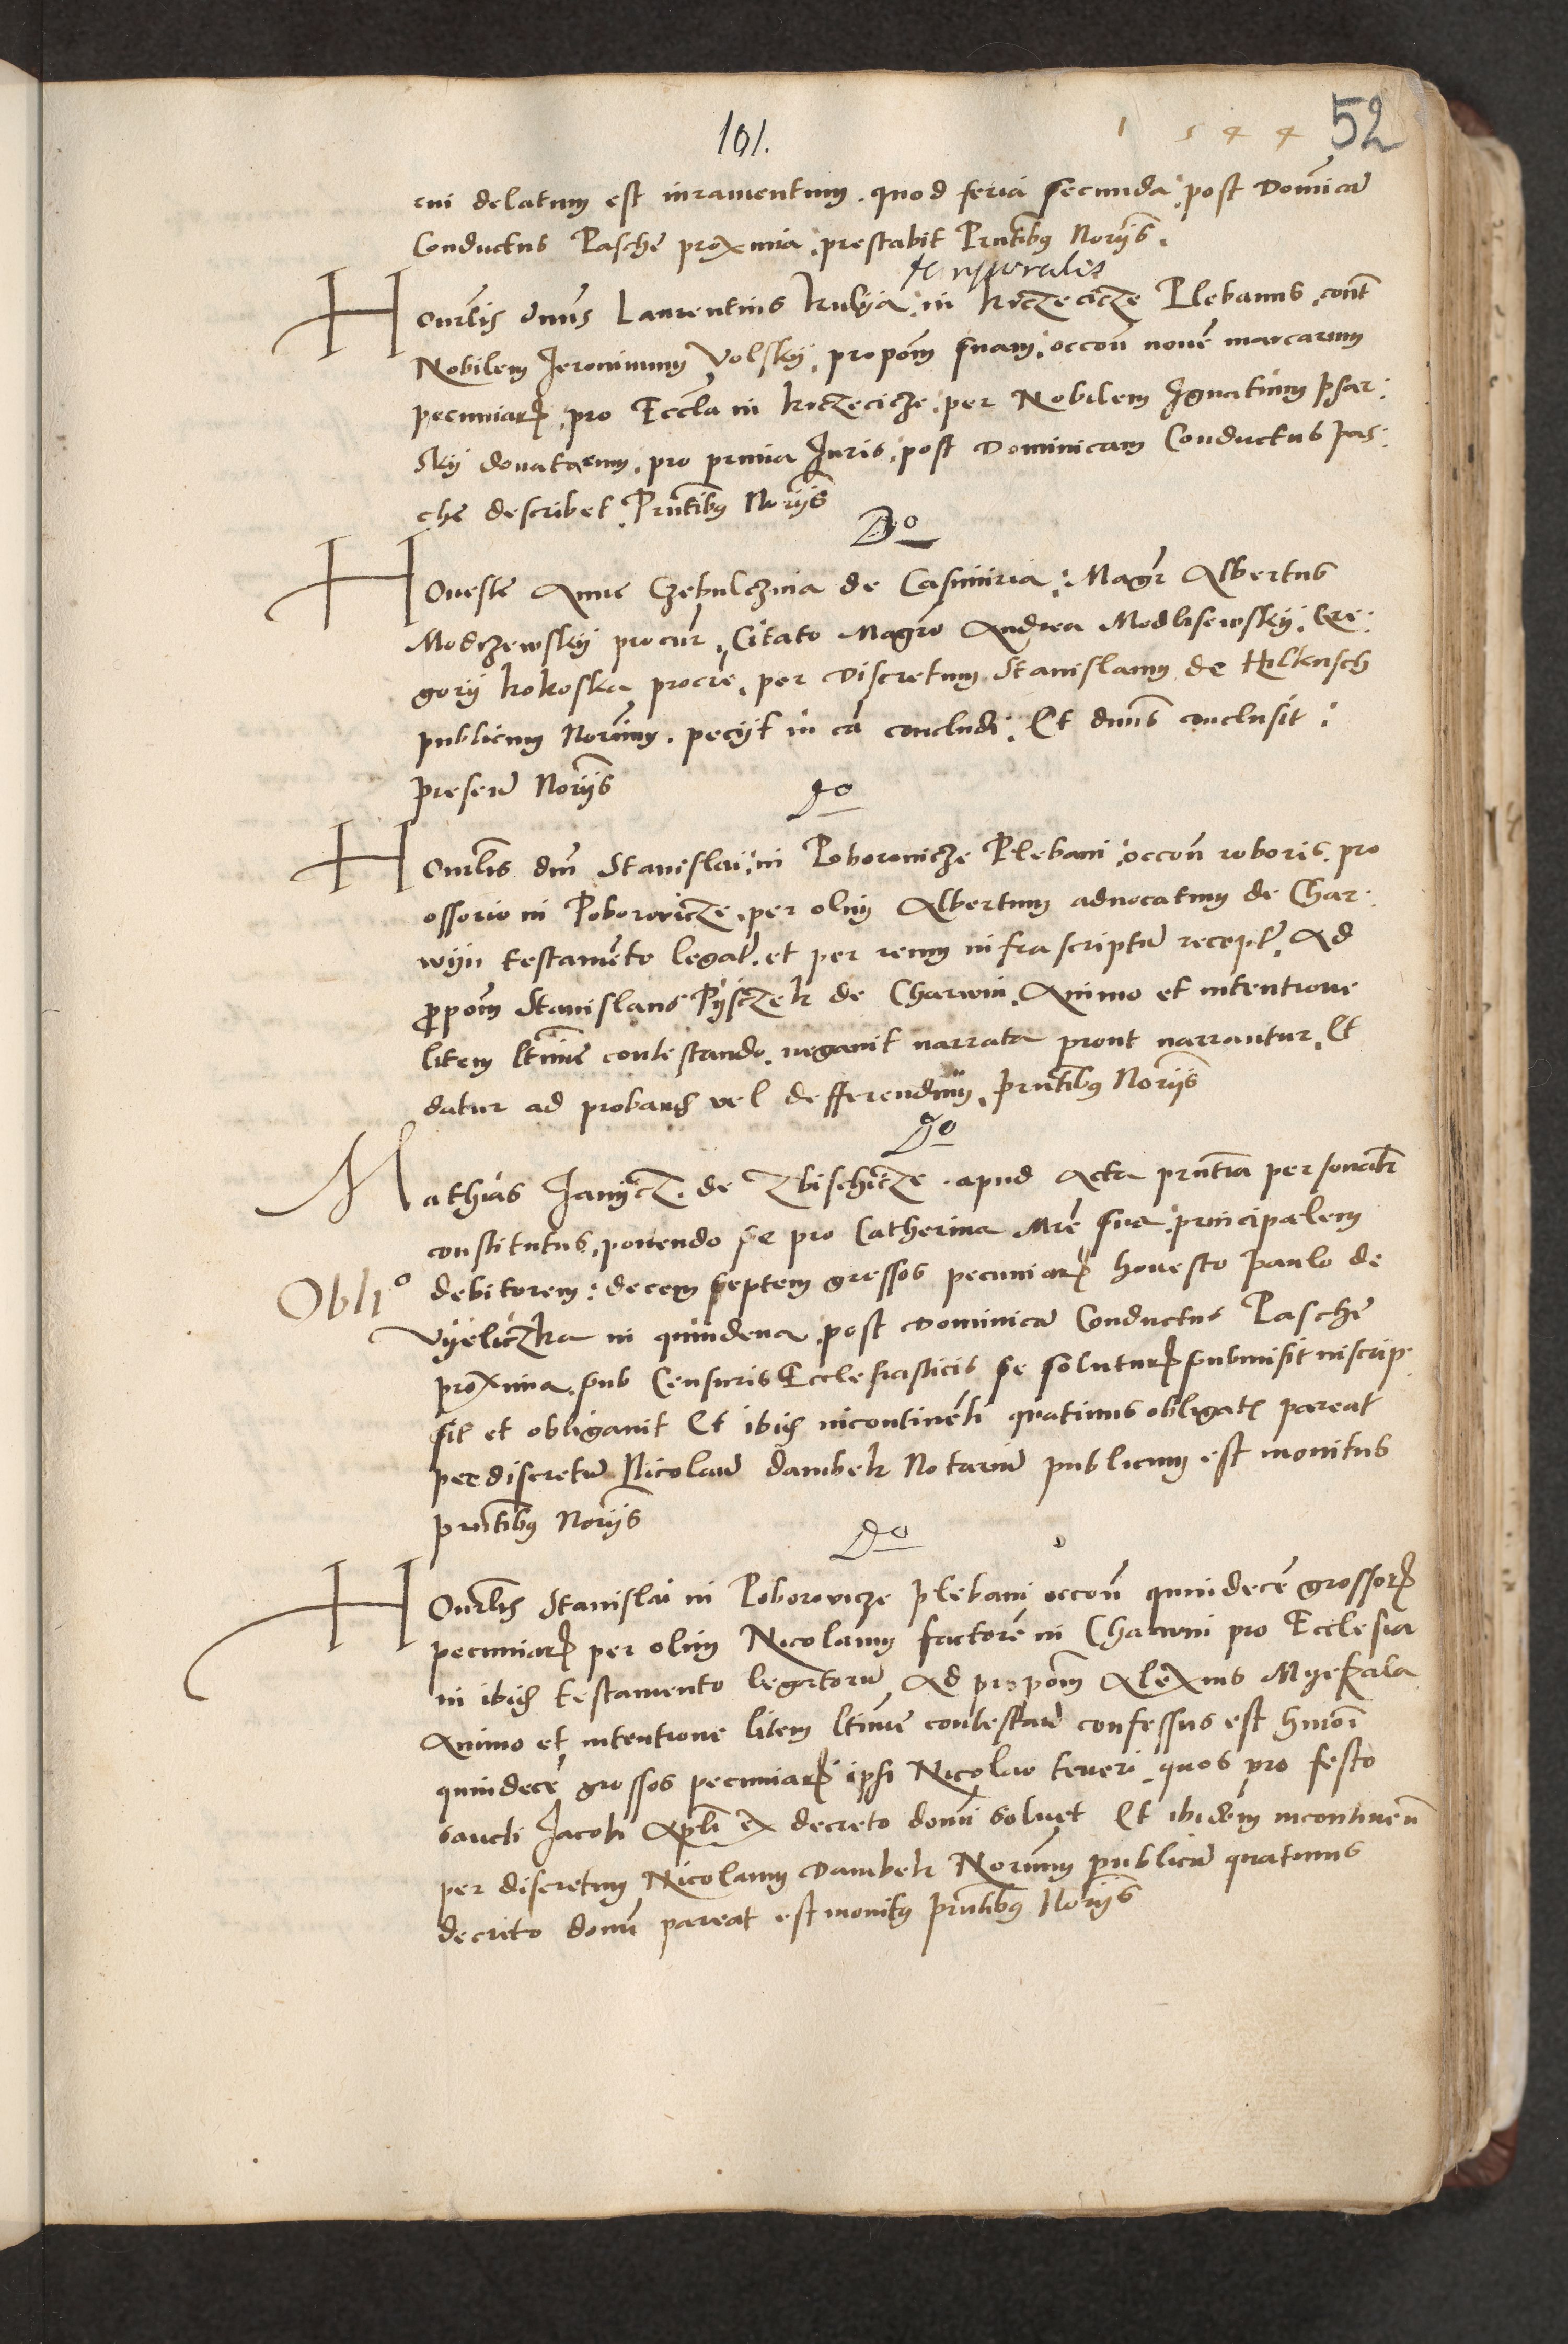 101.
1 5 4 4 52
cui delatum est iuramentum. quod feria secunda post Dominicā
Conductus Pasche proxima, prestabit Pr̄ntibus Norijs.
temporalis
Honrlis dnus Laurentius Kulya in Kriczecicze Plebanus, cont̄
Nobilem Jeronimum Volsky, propōm suam, occōn novē marcarum
pecuniar̄, pro Eccla in Kriczecicze, per Nobilem Ignatium Psar:
sky donatarum, pro prima Juris, post Dominicam Conductus Pas:
che describet Pr̄ntibus Norijs
Do
Honeste Anne Czebulczina de Casimiria: Magr̄ Albertus
Modczewsky procur̄, Citato Magr̄o Andrea Modlisewsky, Gre:
gorij Kokoska procr̄e, per Discretum Stanislaum de Hlkusch
publicum Norium. pecijt in cā concludi. Et dnus conclusit:
presen̄ Norijs
Do
Honrlis dni Stanislai in Poborovicze Plebani, occōn roboris pro
ossorio in Poborovicze, per olim Albertum advocatum de Char:
wyn testamēto legat̄. et per reum infrascriptū recept̄, Ad
propōm Stanislaus Pysczek de Charwin, Animo et intentione
litem ltīme contestando, negavit narrata prout narrantur, Et
datur ad proband̄ vel defferendum, pr̄ntibus Norijs
Do
Mathias Janycz de Zbischicze apud Acta pr̄ntia personalr̄
constitutus, ponendo se pro Catherina Mr̄e sua principalem
Oblio
debitorem: decem septem grossos pecuniar̄ honesto Paulo de
Vyeliczka in quindena post Dominicā Conductus Pasche
proxima, sub Censuris Ecclesiasticis se solutur̄ submisit inscrip:
sit et obligavit Et ibid̄ incontinēti quatinus obligat̄ pareat
per discretū Nicolaū Dambek Notariū publicum est monitus
pr̄ntibus Norijs
Do
Honrlis Stanislai in Poborovicze plebani occōn quindecē grossor̄
pecuniar̄ per olim Nicolaum factorē in Charwin pro Ecclesia
in ibid̄ testamento legatorū, Ad propōm Alexius Myekala
Animo et intentione litem ltīme contestan̄ confessus est hmōi
quindecē grossos pecuniar̄ ipsi Nicolao teneri, quos pro festo
sancti Jacobi Apli ex decreto domi solvet Et ibidem incontinen̄
per discretum Nicolaum Dambek Norium publicū quatinus
decreto domi pareat est monitus pr̄ntibus Norijs